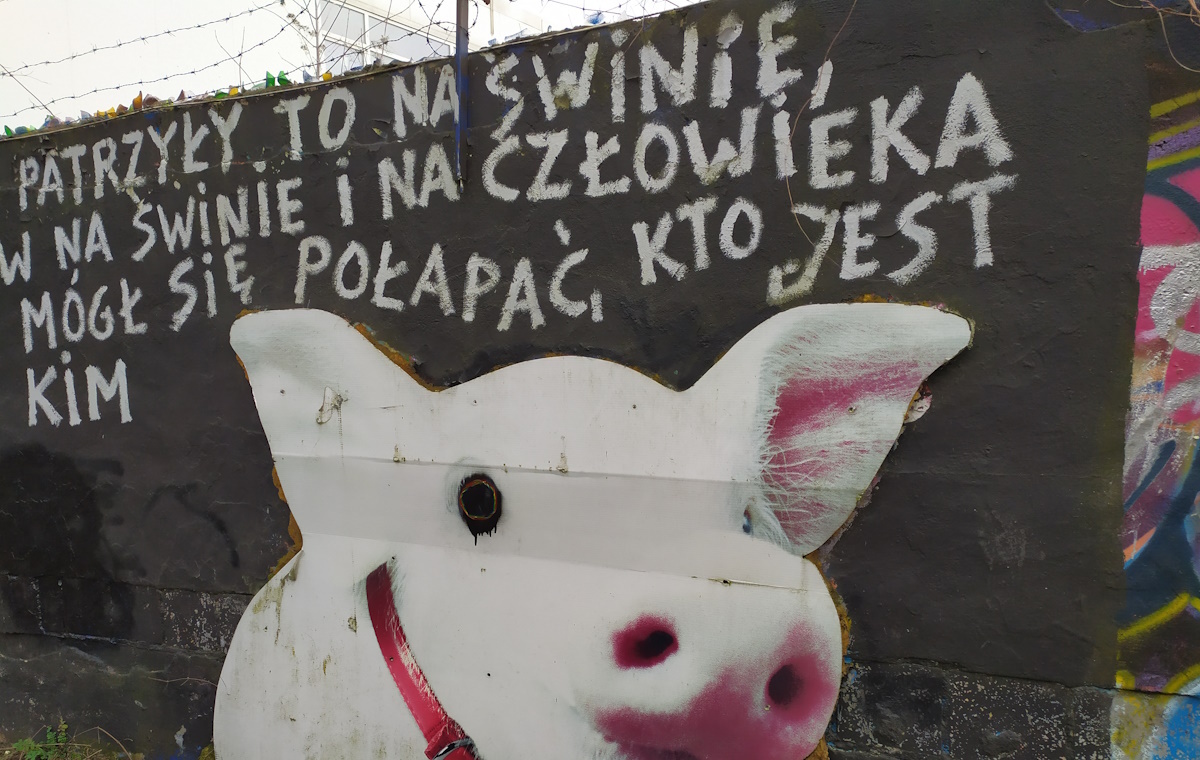 PATRZYŁY. TO NA ŚWINIE,
W NA ŚWINIE I NA CZŁOWIEKA
MÓGŁ SIĘ POŁAPAĆ, KTO JEST
KIM